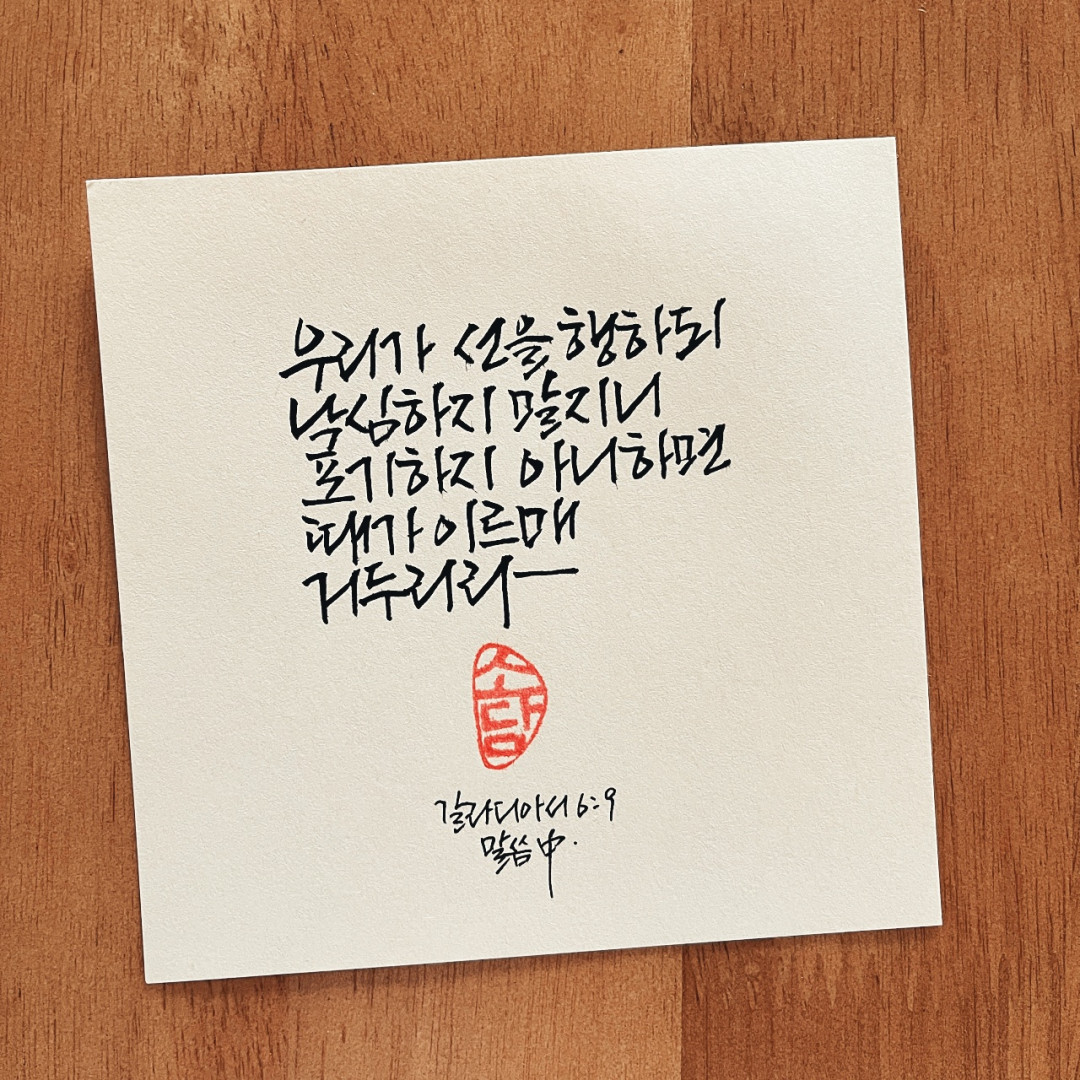 우리가 선을 행하되
낙심하지 말지니
포기하지 아니하면
때가 이르매
거두리라ㅡ
소담
갈라디아서 6:9
말씀 中.